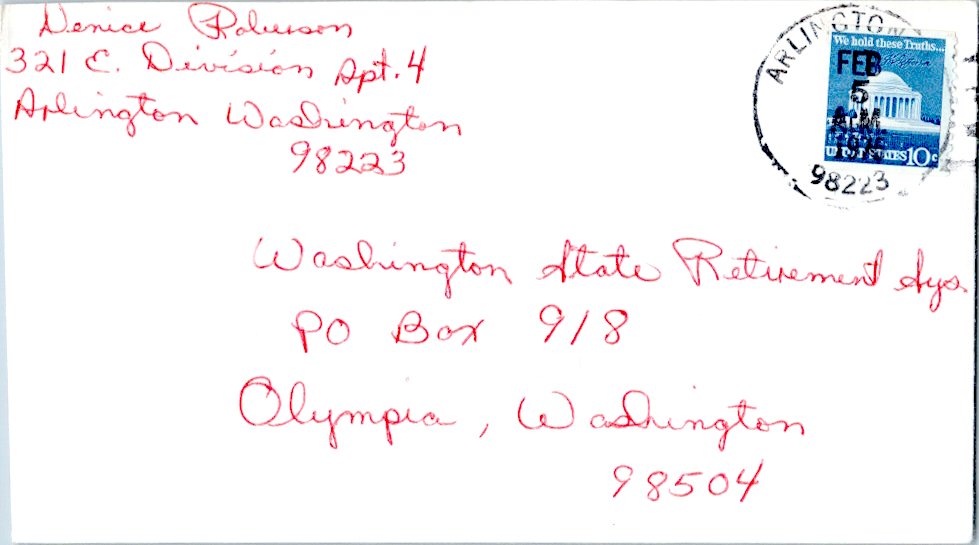 Denice Roberson
321 E. Division Apt. 4
Arlington Washington
98223
ARLINGTON
FEB
5
A.M.
98223
We hold these Truths...
UNITED STATES 10c
Washington State Retirement Sys.
PO Box 918
Olympia, Washington
98504